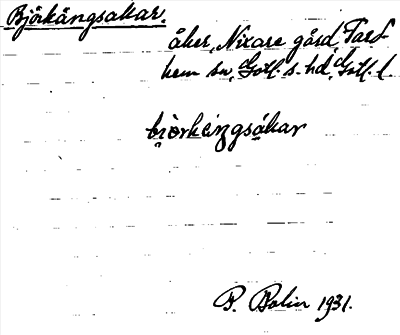 Björkängsakar.
åker, Nixare gård, Fard-
hem sn, Gotl. s. hd, Gotl. l.
björkängsåkar
B. Bolin 1931.